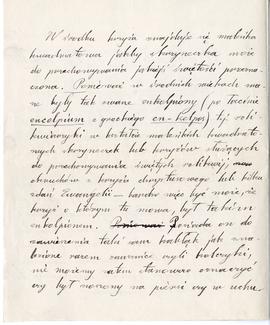 W środku krzyża znajduje się maleńka
kwadratowa jakby skrzyneczka może
do przechowywania jakiejś świętości przezna-
czona. Ponieważ w średnich wiekach zna-
ne były tak zwane enkolpiony (po łacinie
encolpium z greckiego en-kolpos) tj. reli-
kwiarzyki w kształcie maleńkich kwadratowych
skrzyneczek lub krzyżów służących
do przechowywania świętych relikwij,
okruchów z krzyża chrystusowego lub kilku
zdań Ewangelii — bardzo więc być może, że
krzyż o którym tu mowa, był także
enkolpionem. Ponieważ Posiada on do
zawieszenia taki sam kabłąk jak zna-
lezione razem zausznice czyli kolczyki,
nie możemy zatem stanowczo oznaczyć
czy był noszony na piersi czy w uchu.